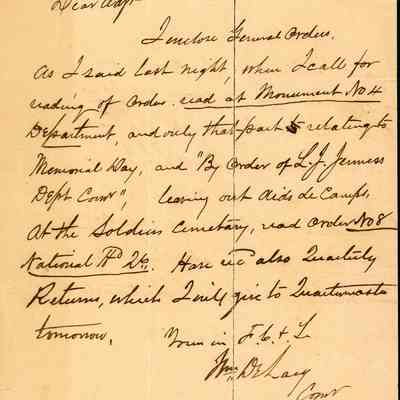 Dear Adjt
I enclose General Orders.
As I said last night, when I call for
reading of Orders. read at Monument No 4
Department, and only that part relating to
Memorial Day, and "By Order of L. J. Jenness
Dept Comr", leaving out Aids de Camps.
At the Soldiers Cemetary, read Order No 8
National Hd Qs. Have recd also Quarterly
Returns, which I will give to Quartermaster
tomorrow. Yours in F. C. & L.
Wm DeLacy
Comr